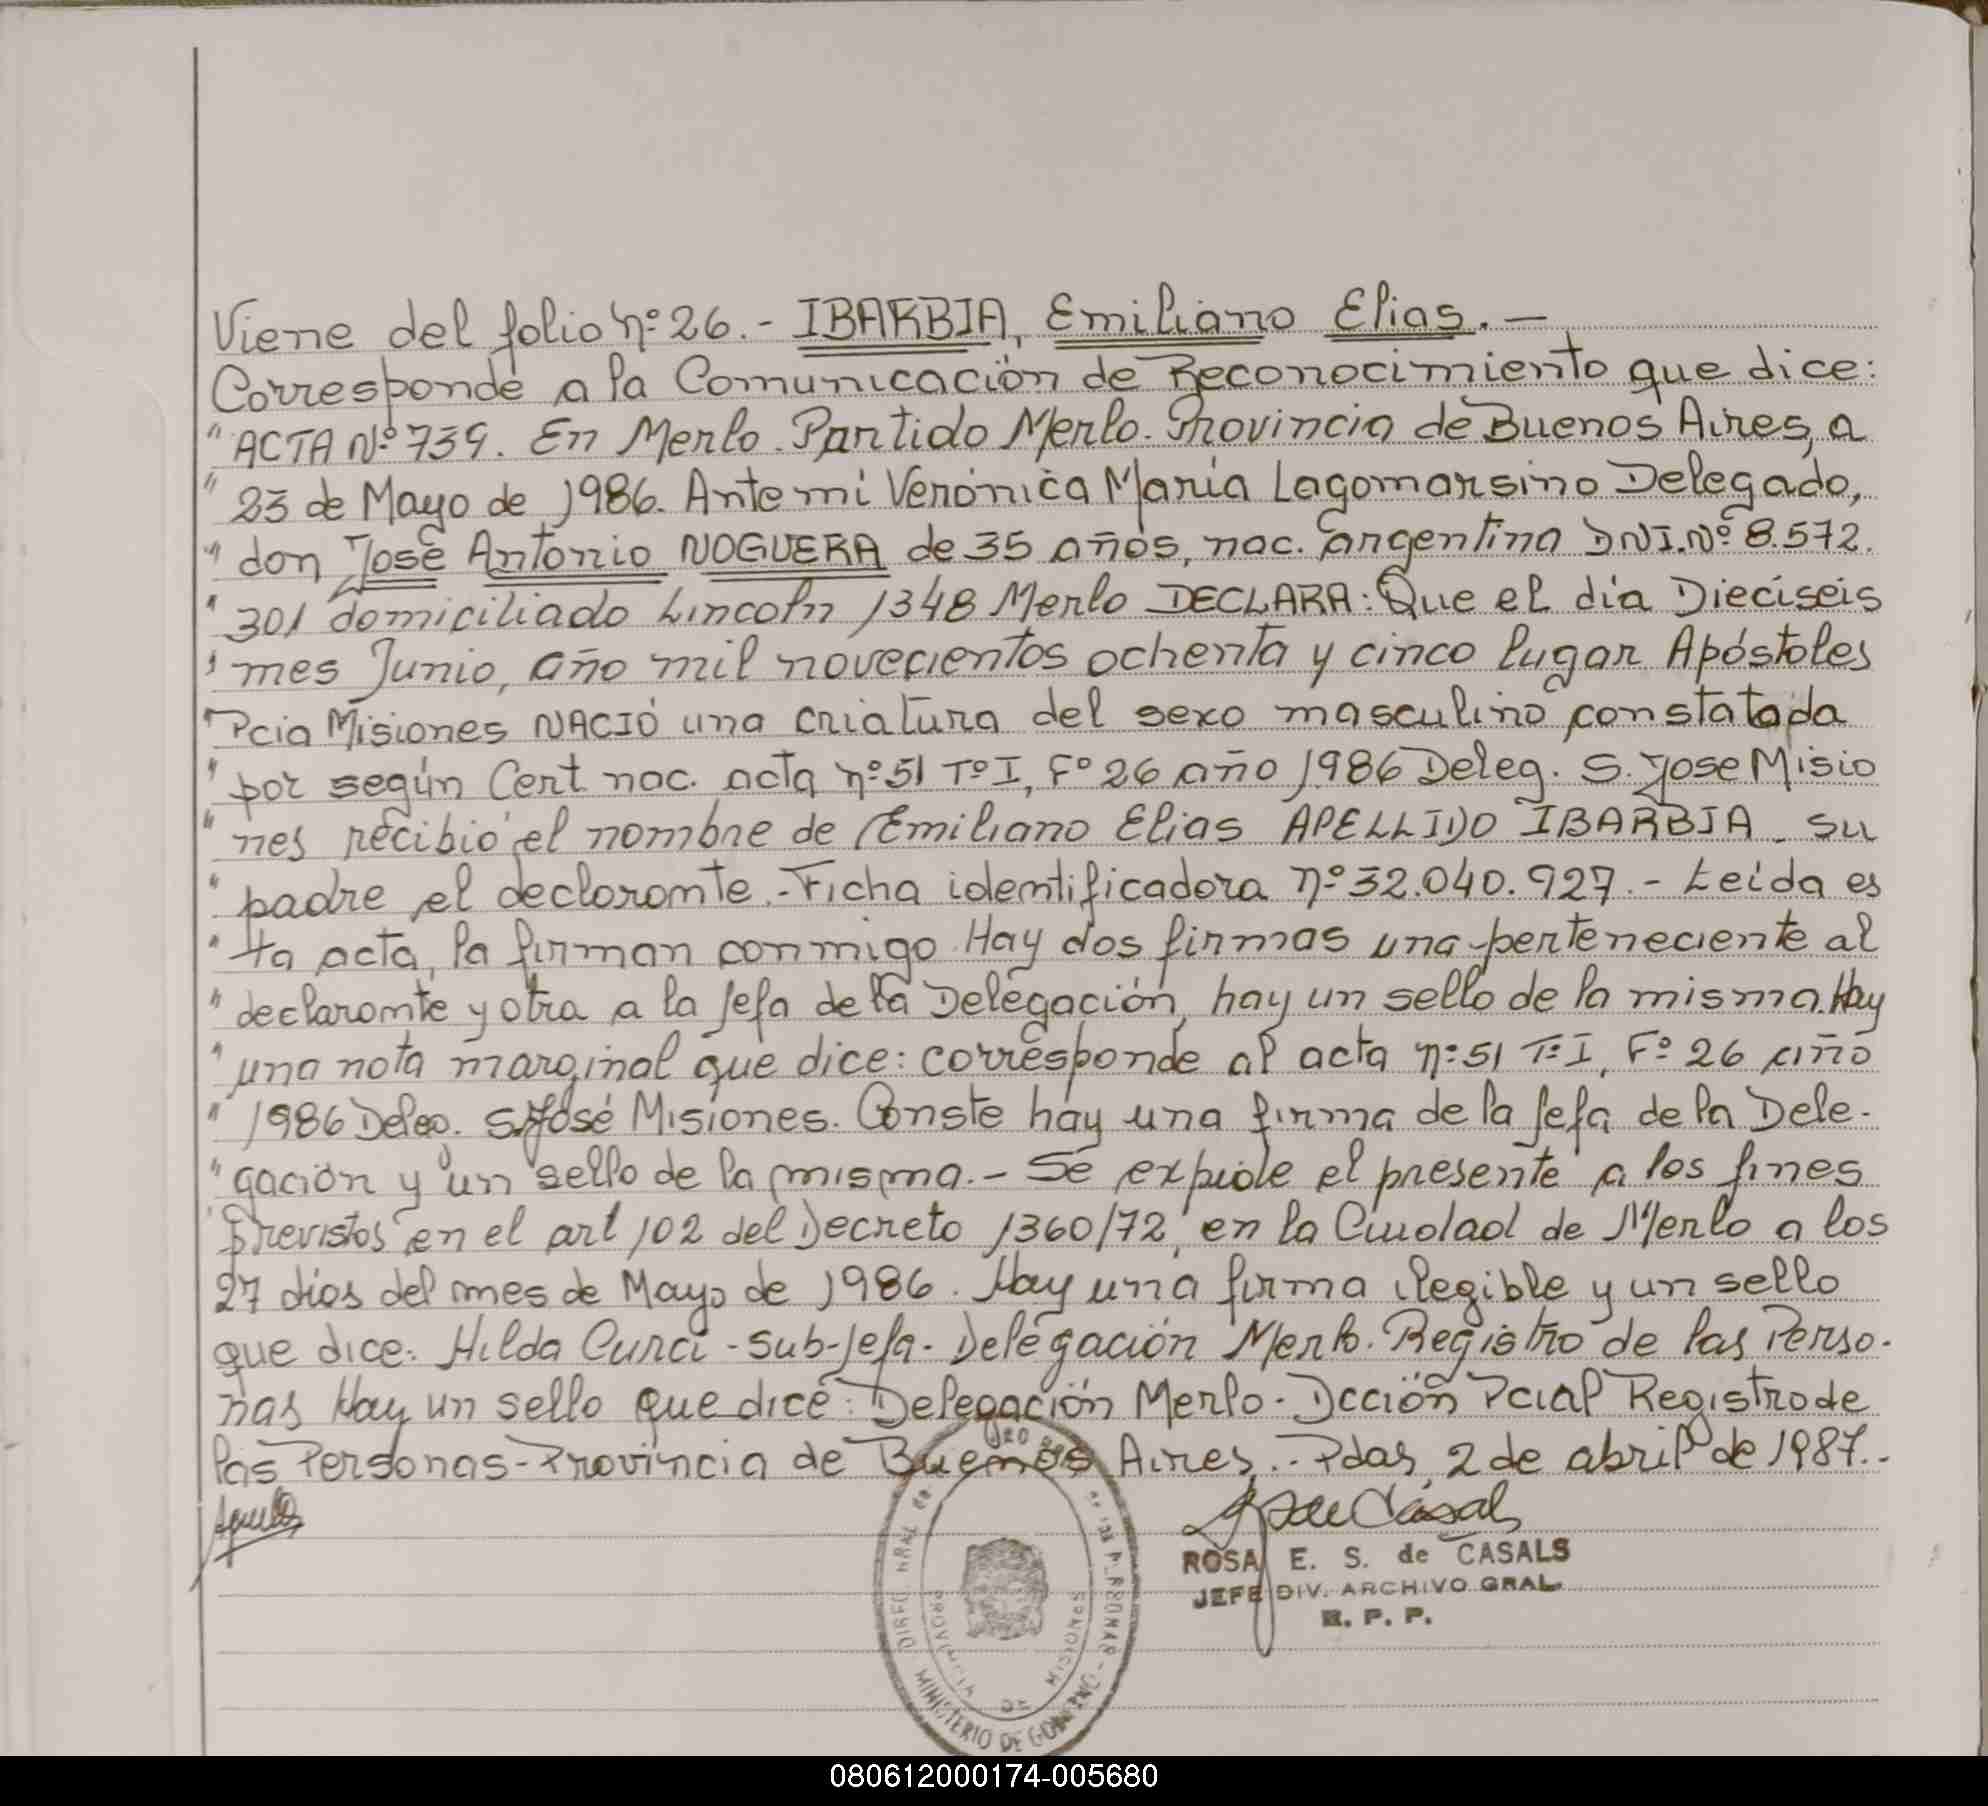 Viene del folio nº 26.- IBARBIA, Emiliano Elias.-
Corresponde a la Comunicación de Reconocimiento que dice:
" ACTA Nº 739. En Merlo. Partido Merlo. Provincia de Buenos Aires, a
" 23 de Mayo de 1986. Ante mi Verónica María Lagomarsino Delegado,
" don José Antonio NOGUERA de 35 años, nac. argentina DNI. Nº 8.572.
" 301 domiciliado Lincoln 1348 Merlo DECLARA: Que el día Dieciseis
" mes Junio, año mil novecientos ochenta y cinco lugar Apóstoles
" Pcia Misiones NACIÓ una criatura del sexo masculino constatada
" por según Cert nac. acta nº 51 Tº I, Fº 26 año 1986 Deleg. S. Jose Misio
" nes recibió el nombre de Emiliano Elias APELLIDO IBARBIA. Su
" padre el declarante.- Ficha identificadora nº 32.040.927.- Leída es
" ta acta, la firman conmigo. Hay dos firmas una perteneciente al
" declarante y otra a la Jefa de la Delegación, hay un sello de la misma. Hay
" una nota marginal que dice: corresponde al acta nº 51 Tº I, Fº 26 año
" 1986 Deleg. S. José Misiones. Conste hay una firma de la Jefa de la Dele-
" gación y un sello de la misma.- Se expide el presente a los fines
previstos en el art 102 del Decreto 1360/72, en la Ciudad de Merlo a los
27 días del mes de Mayo de 1986. Hay una firma ilegible y un sello
que dice: Hilda Curci - Sub-Jefa. Delegación Merlo. Registro de las Perso-
nas Hay un sello que dice: Delegación Merlo. Dcción Pcial Registro de
las Personas- Provincia de Buenos Aires.- Pdas, 2 de abril de 1987.-
ROSA E. S. de CASALS
JEFE DIV. ARCHIVO GRAL.
R. P. P.
PROVINCIA DE MISIONES
MINISTERIO DE GOBIERNO
080612000174-005680